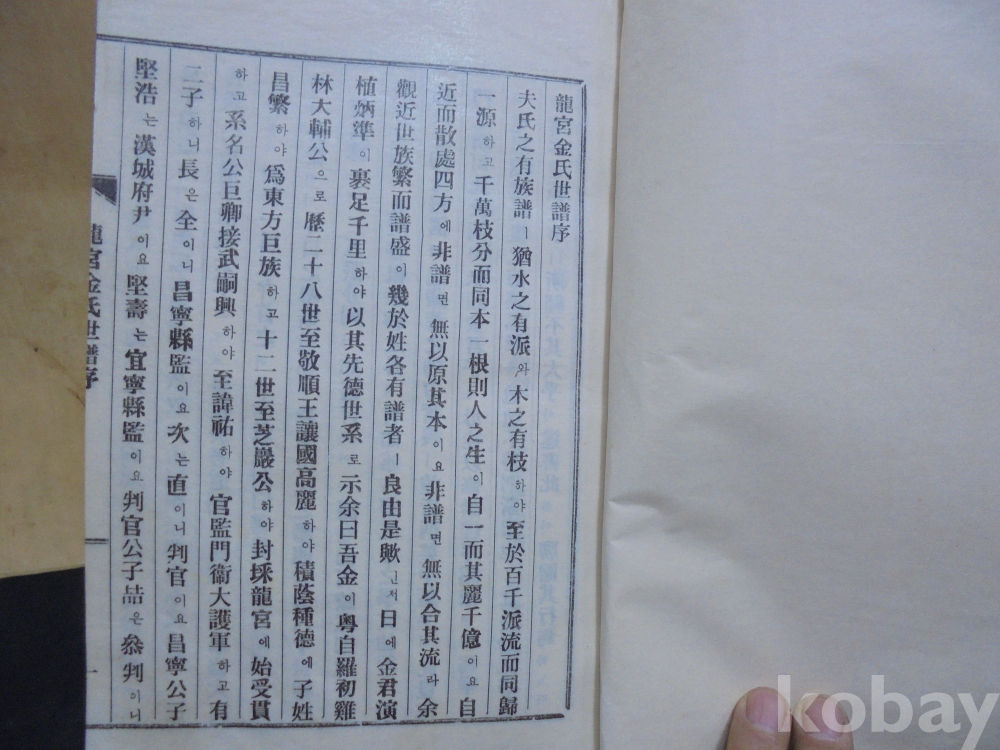 龍宮金氏世譜序
夫氏之有族譜ㅣ猶水之有派와木之有枝하야至於百千派流而同歸
一源하고千萬枝分而同本一根則人之生이自一而其麗千億이요自
近而散處四方에非譜면無以原其本이요非譜면無以合其流라余
觀近世族繁而譜盛이幾於姓各有譜者ㅣ良由是歟ㄴ저日에金君演
植炳準이裹足千里하야以其先德世系로示余曰吾金이粤自羅初雞
林大輔公으로歷二十八世至敬順王讓國高麗하야積蔭種德에子姓
昌繁하야爲東方巨族하고十二世至芝巖公하야封埰龍宮에始受貫
하고系名公巨卿接武嗣興하야至諱祐하야官監門衞大護軍하고有
二子하니長은全이니昌寧縣監이요次는直이니判官이요昌寧公子
堅浩는漢城府尹이요堅壽는宜寧縣監이요判官公子喆은叅判이니
龍宮金氏世譜序
一
kobay